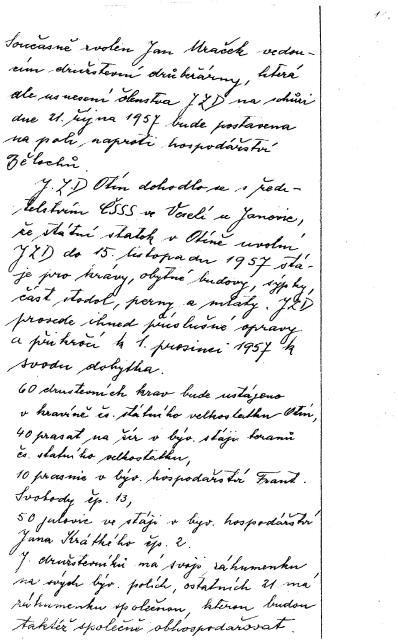 Současně zvolen Jan Mraček vedou-
cím družstevní drůbežárny, která
dle usnesení členstva JZD na schůzi
dne 21. října 1957 bude postavena
na poli, naproti hospodářství
Bělochů.
JZD Otín dohodlo se s ředi-
telstvím ČSSS ve Veselí u Janovic,
že státní statek v Otíně uvolní
JZD do 15. listopadu 1957 stá-
je pro krávy, obytné budovy, sýpky,
část stodol, perny a mlaty. JZD
provede ihned příslušné opravy
a přikročí k 1. prosinci 1957 k
svodu dobytka.
60 družstevních krav bude ustájeno
v kravíně čs. státního velkostatku Otín,
40 prasat na žír v býv. stáji beranů
čs. státního velkostatku,
10 prasnic v býv. hospodářství Frant.
Svobody čp. 13,
50 jalovic ve stáji v býv. hospodářství
Jana Krátkého čp. 2.
7 družstevníků má svoji záhumenku
na svých býv. polích, ostatních 21 má
záhumenku společnou, kterou budou
taktéž společně obhospodařovat.